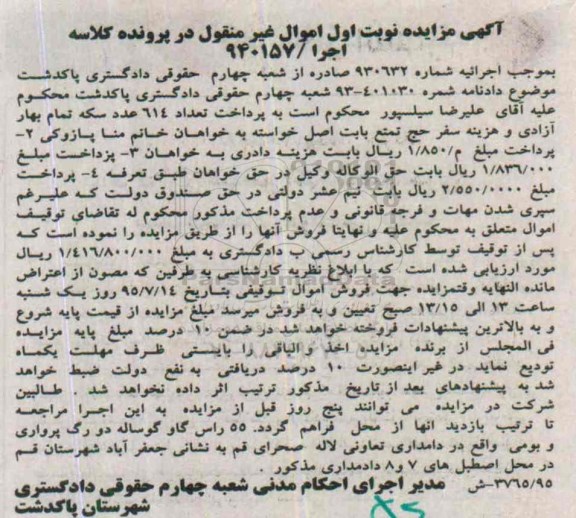 آگهی مزایده نوبت اول اموال غیر منقول در پرونده کلاسه
اجرا /۹۴۰۱۵۷
بموجب اجرائیه شماره ۹۳۰۶۳۲ صادره از شعبه چهارم حقوقی دادگستری پاکدشت
موضوع دادنامه شمره ۴۰۱۰۳۰-۹۳ شعبه چهارم حقوقی دادگستری پاکدشت محکوم
علیه آقای علیرضا سیلسپور محکوم است به پرداخت تعداد ۶۱۴ عدد سکه تمام بهار
آزادی و هزینه سفر حج تمتع بابت اصل خواسته به خواهان خانم منا پازوکی ۲-
پرداخت مبلغ م/۱/۸۵۰ ریال بابت هزینه دادری به خواهان ۳- پزداخت مبلغ
۱/۸۳۶/۰۰۰ ریال بابت حق الوکاله وکیل در حق خواهان طبق تعرفه ۴- پرداخت
مبلغ ۲/۵۵۰/۰۰۰۰ ریال بابت نیم عشر دولتی در حق صندوق دولت که علیرغم
سپری شدن مهات و فرجه قانونی و عدم پرداخت مذکور محکوم له تقاضای توقیف
اموال متعلق به محکوم علیه و نهایتا فروش آنها را از ظریق مزایده را نموده است که
پس از توقیف توسط کارشناس رسمی ب دادگستری به مبلغ ۱/۴۱۶/۸۰۰/۰۰۰ ریال
مورد ارزیابی شده است که با ابلاغ نظریه کارشناسی به طرفین که مصون از اعتراض
مانده النهایه وقتمزایده جهت فروش اموال توقیفی بتاریخ ۹۵/۷/۱۴ روز یک شنبه
ساعت ۱۳ الی ۱۳/۱۵ صبح تعیین و به فروش میرسد مبلغ مزایده از قیمت پایه شروع
و به بالاترین پیشنهادات فروخته خواهد شد در ضمن ۱۰ درصد مبلغ پایه مزایده
فی المجلس از برنده مزایده اخذ و الباقی را بایستی ظرف مهلت یکماه
تودیع نماید در غیر اینصورت ۱۰ درصد دریافتی به نفع دولت ضبط خواهد
شد به پیشنهادهای بعد از تاریخ مذکور ترتیب اثر داده نخواهد شد . طالبین
شرکت در مزایده می توانند پنج روز قبل از مزایده به این اجرا مراجعه
تا ترتیب بازدید انها از محل فراهم گردد. ۵۵ راس گاو گوساله دو رگ پرواری
و بومی واقع در دامداری تعاونی لاله صحرای قم به نشانی جعفر آباد شهرستان قم
در محل اصطبل های ۷ و۸ دادمداری مذکور .
۳۷۶۵/۹۵-ش مدیر اجرای احکام مدنی شعبه چهارم حقوقی دادگستری
شهرستان پاکدشت